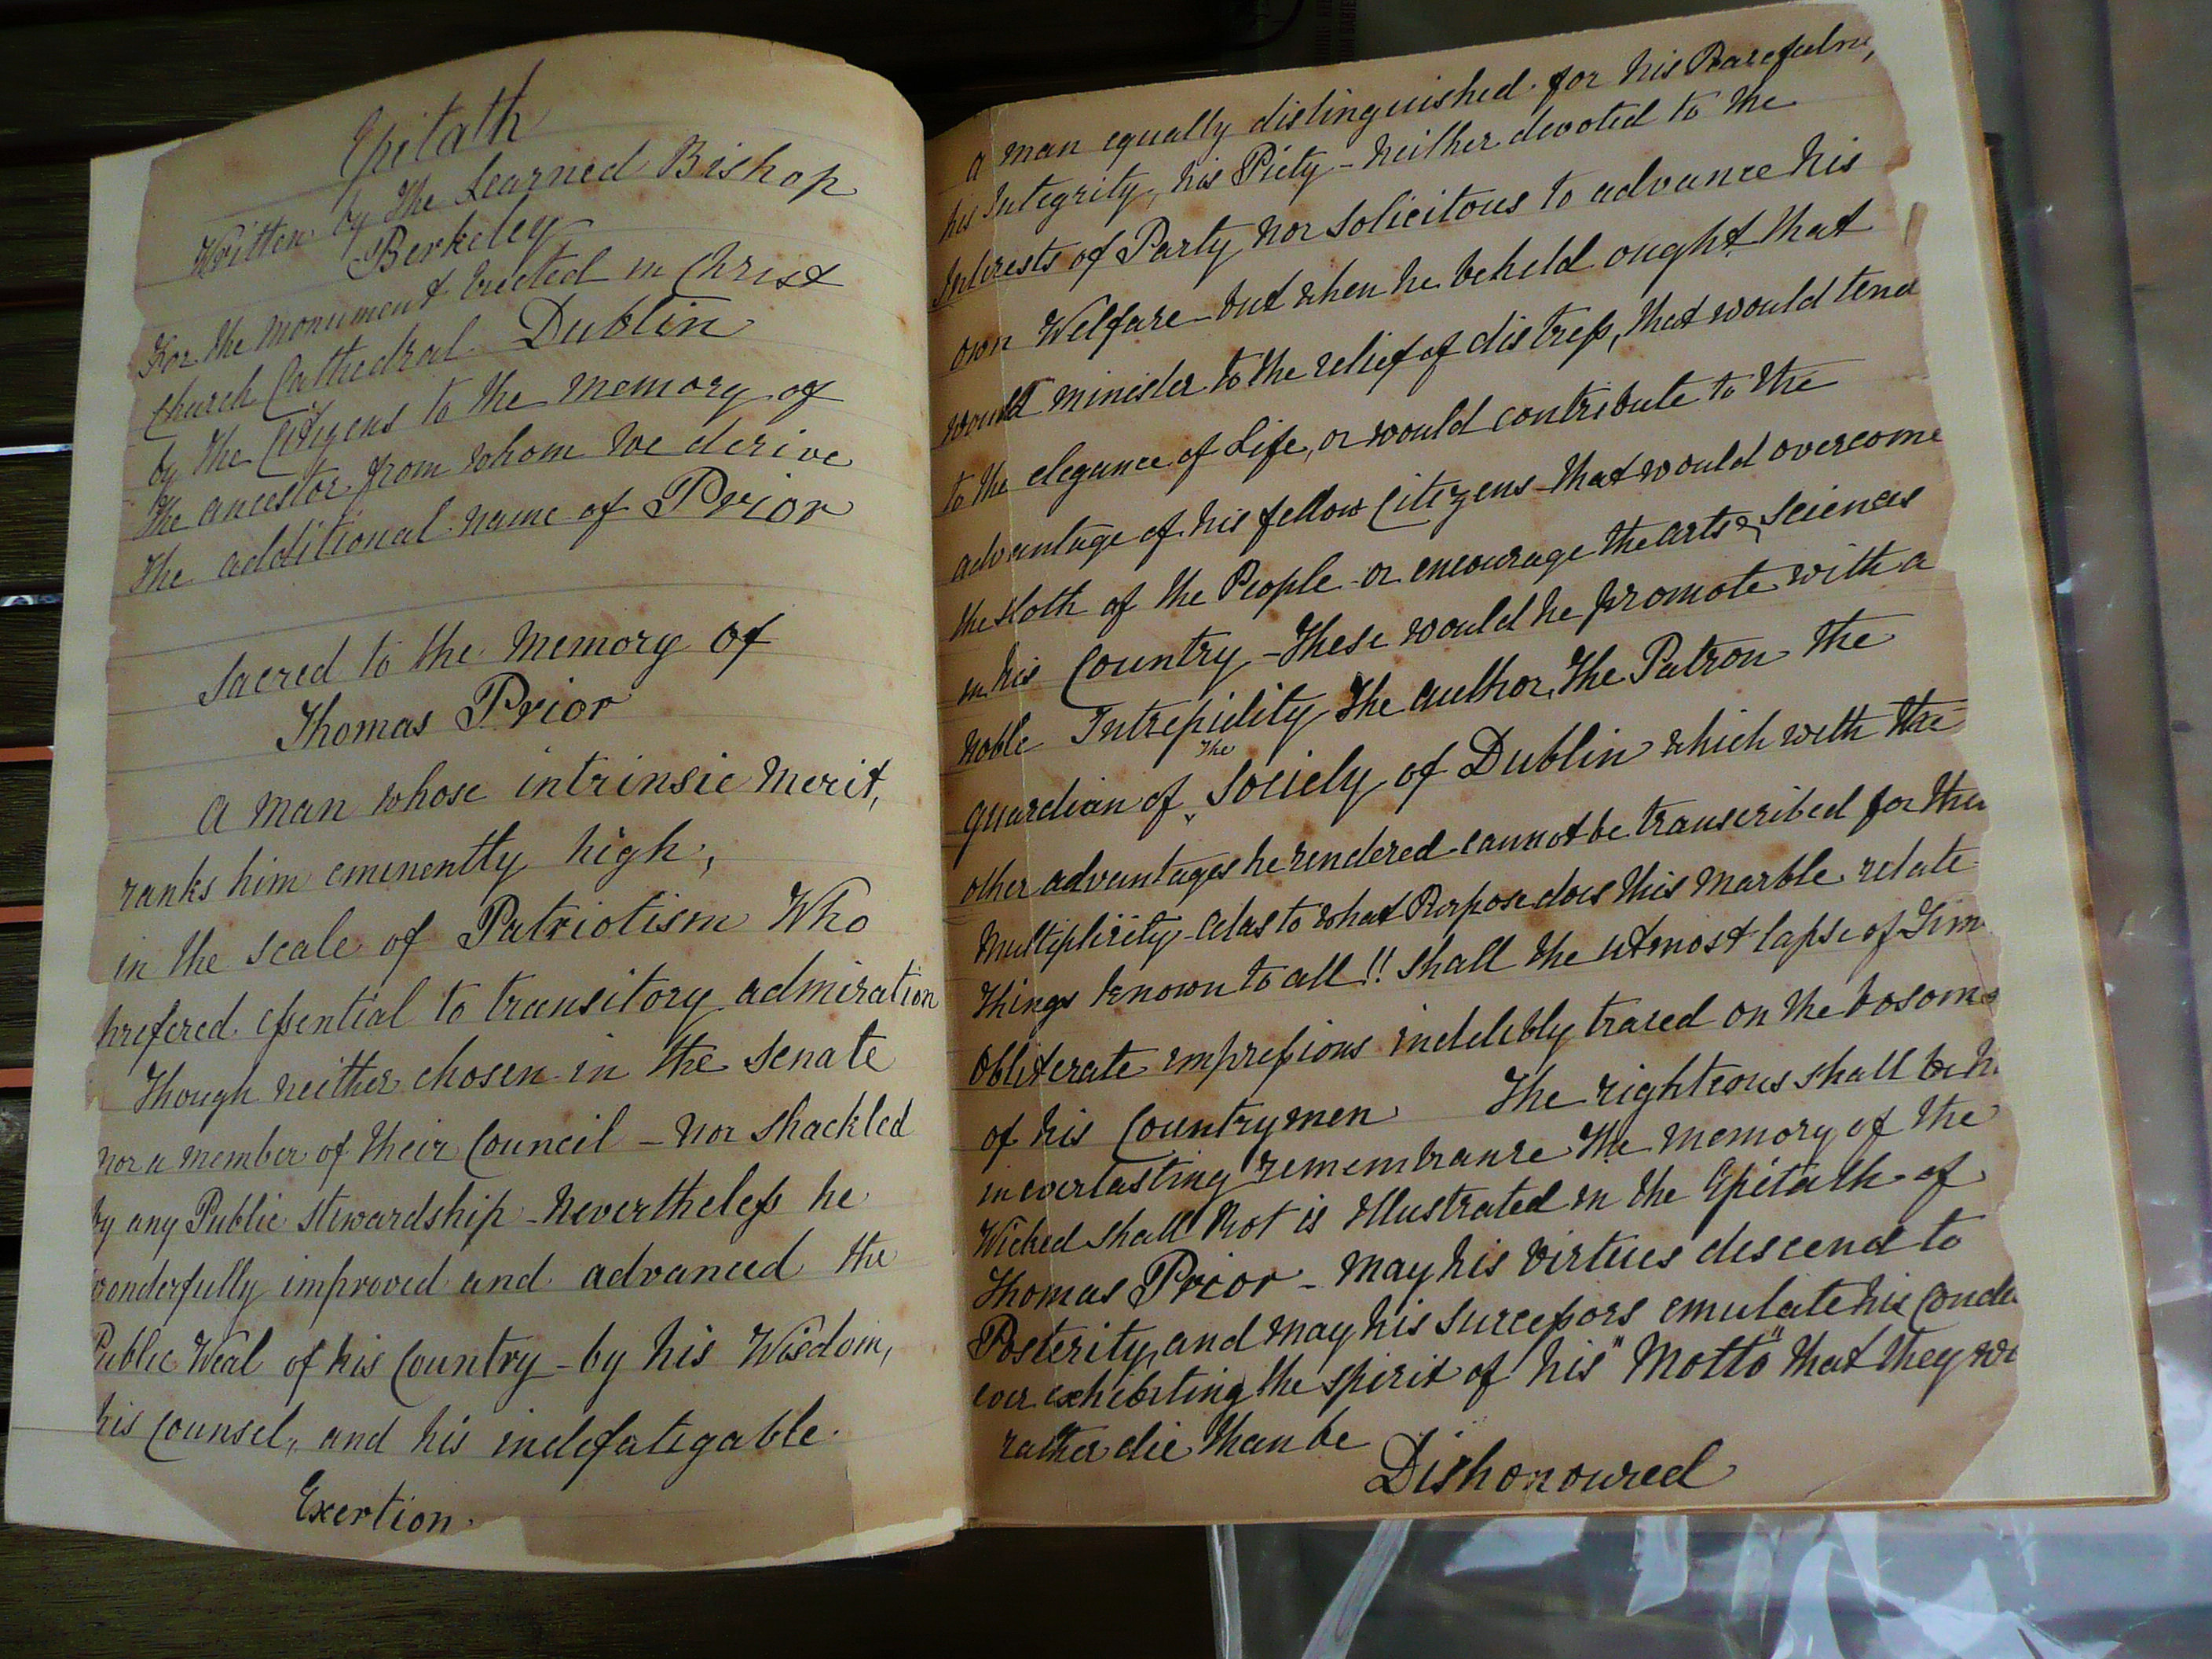 Epitath
Written by the Learned Bishop
Berkeley
For the monument Erected in Christ
Church Cathedral Dublin
by the Citizens to the memory of
the ancestor from whom we derive
the additional name of Prior
Sacred to the Memory of
Thomas Prior
A man whose intrinsic merit,
ranks him eminently high,
in the scale of Patriotism Who
prefered essential to transitory admiration
Though neither chosen in the Senate
nor a member of their Council - nor shackled
by any Public Stewardship - Nevertheless he
wonderfully improved and advanced the
Public Weal of his Country - by his Wisdom,
his Counsel, and his indefatigable
Exertion.
A man equally distinguished for his
his Integrity, his Piety - neither devoted to the
Interests of Party nor solicitous to advance his
own Welfare - but when he beheld ought that
would minister to the relief of distress, that would tend
to the elegance of Life, or would contribute to the
advantage of his fellow Citizens - that would overcome
the sloth of the People - or encourage the arts & Sciences
in his Country - These would he promote with a
noble Intrepidity, the author, the Patron the
guardian of the Society of Dublin which with the
other advantages he rendered cannot be transcribed for their
Multiplicity - Alas to what Purpose does this marble relate
things known to all!! Shall the utmost lapse of Tim
Obliterate impressions indelibly traced on the bosoms
of his Countrymen The righteous shall be h
in everlasting remembrance the memory of the
Wicked shall Rot is Illustrated in the Epitath of
Thomas Prior - May his virtues descend to
Posterity, and may his successors emulate his Condu
ever exhibiting the spirit of his "Motto" that they wo
rather die than be
Dishonoured